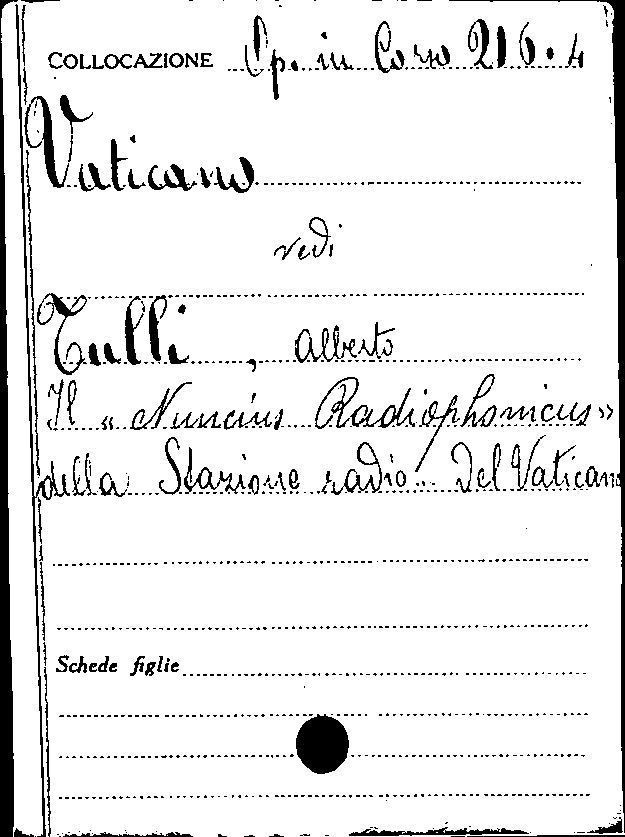 COLLOCAZIONE Op. in Corso 216.4
Vaticano
vedi
Tulli, Alberto
Il « Nuncius Radiophonicus »
della Stazione radio.. Del Vaticano
Schede figlie